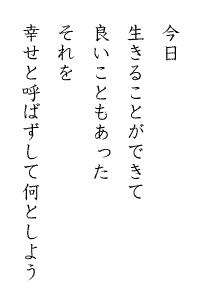 今日
生きることができて
良いこともあった
それを
幸せと呼ばずして何としよう